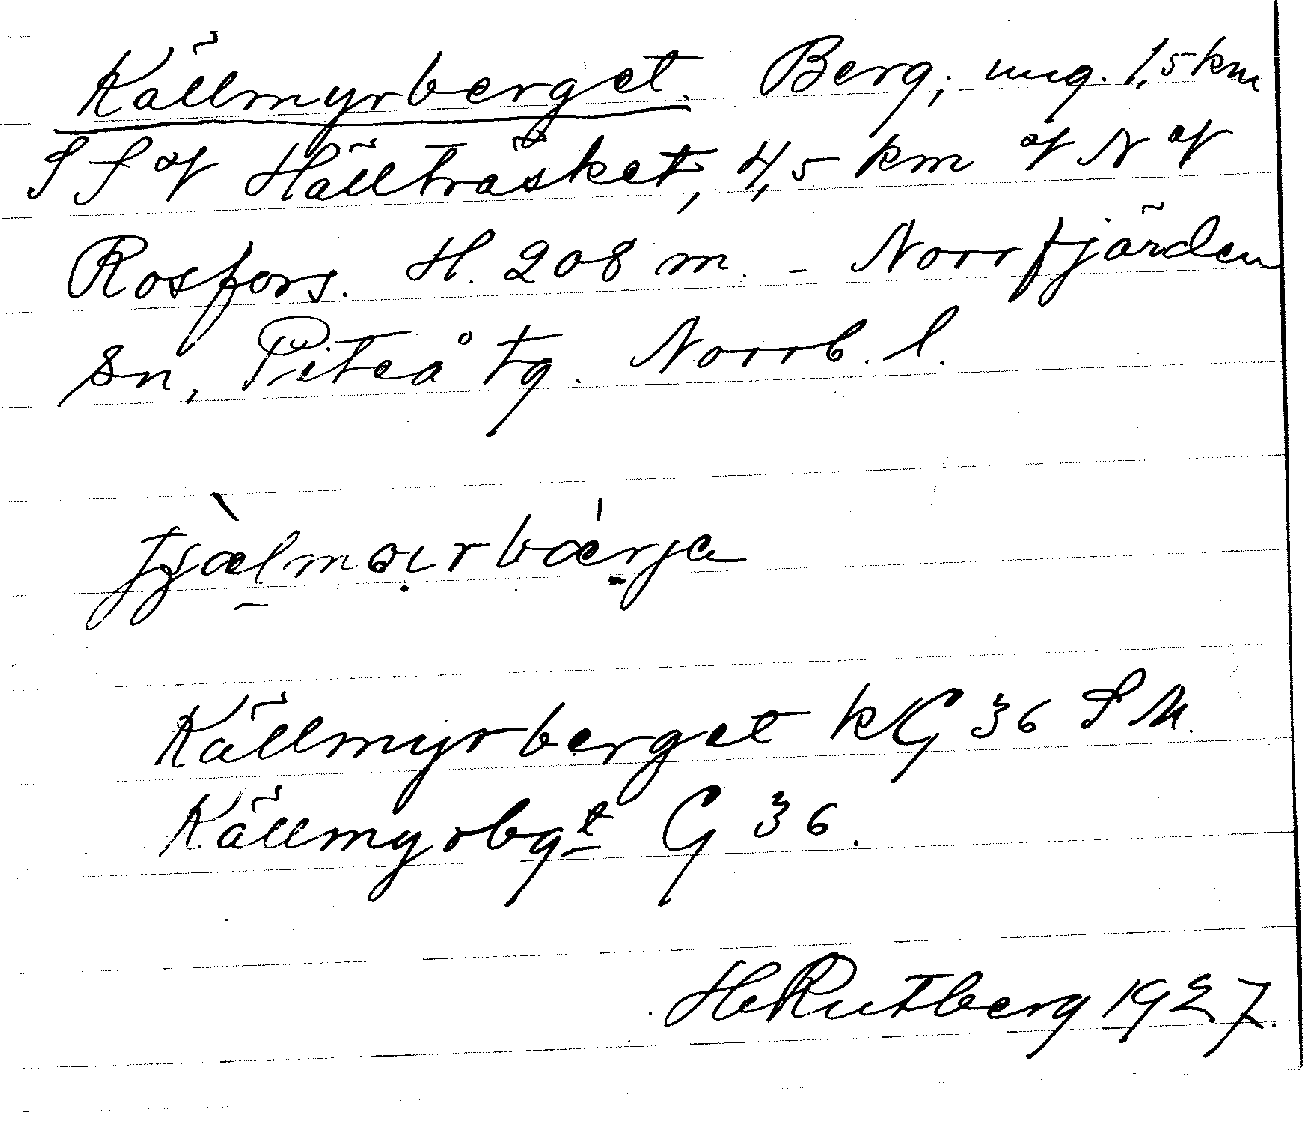 Källmyrberget. Berg, ung. 1,5 km
SS of Hällträsket, 4,5 km of N of
Rosfors. H. 208 m. - Norrfjärden
sn, Piteå tg. Norrb. l.
Källmyrberget kG 36 SM.
Källmyrbgt G 36.
H Rutberg 1927.